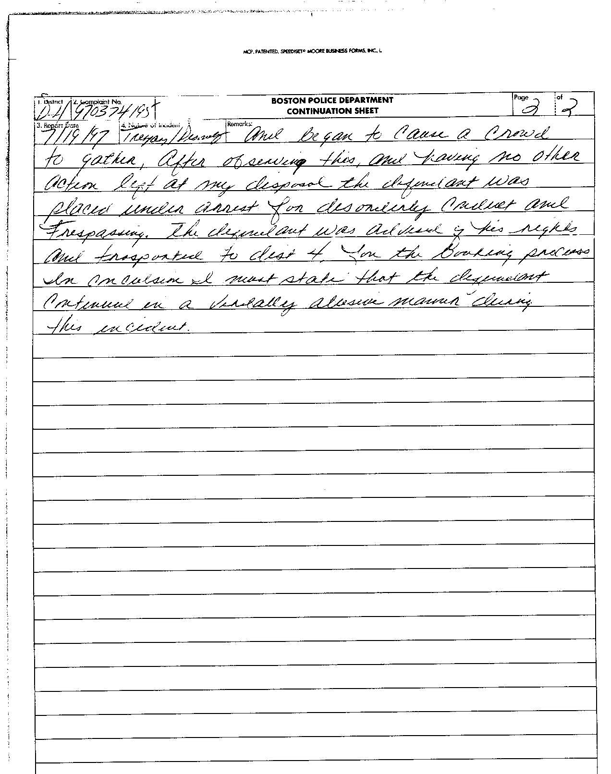 MCP, PATENTED, SPEEDISET® MOORE BUSINESS FORMS, INC., L
BOSTON POLICE DEPARTMENT
CONTINUATION SHEET
1. District D4 2. Complaint No. Page 2 of 2
3. Report Date 7/19/97 4. Nature of Incident Trespass/ Remarks: and began to cause a crowd
to gather, after observing this, and having no other
action left at my disposal the defendant was
placed under arrest for disorderly conduct and
Trespassing. The defendant was advised of his rights
and transported to dist 4. for the booking process
In conculsion I must state that the defendant
continued in a verbally abusive manner during
this incident.